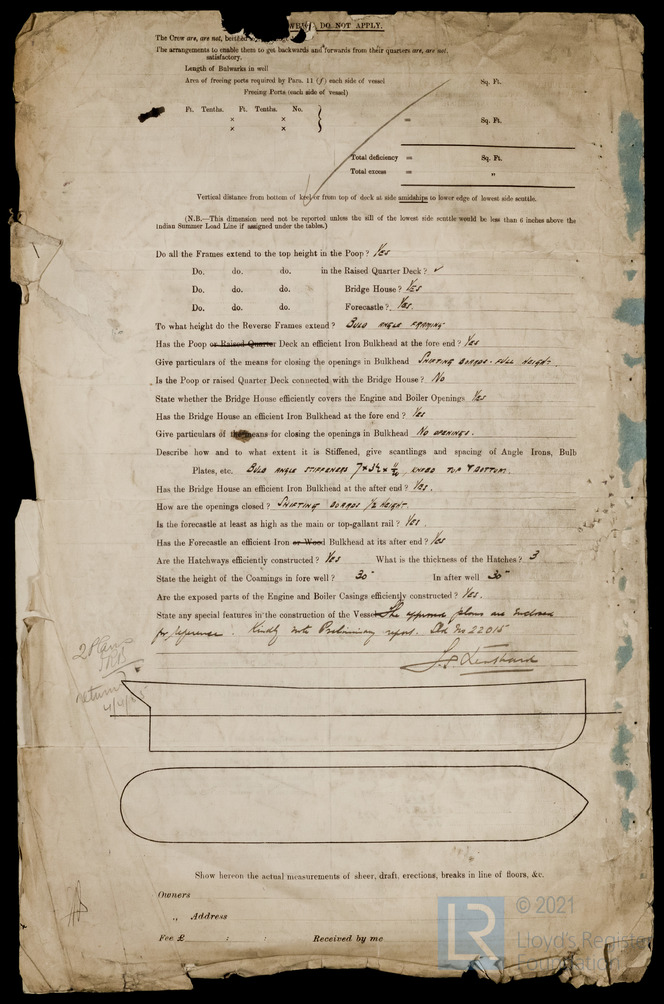 DO NOT APPLY.
The Crew are, are not, berthed
The arrangements to enable them to get backwards and forwards from their quarters are, are not,
satisfactory.
Length of Bulwarks in well
Area of freeing ports required by Para. 11 (f) each side of vessel Sq. Ft.
Freeing Ports (each side of vessel)
Ft. Tenths. Ft. Tenths. No.
× × = Sq. Ft.
× ×
Total deficiency = Sq. Ft.
Total excess = "
Vertical distance from bottom of keel or from top of deck at side amidships to lower edge of lowest side scuttle.
(N.B.—This dimension need not be reported unless the sill of the lowest side scuttle would be less than 6 inches above the
Indian Summer Load Line if assigned under the tables.)
Do all the Frames extend to the top height in the Poop? Yes
Do. do. do. in the Raised Quarter Deck? ✓
Do. do. do. Bridge House? Yes
Do. do. do. Forecastle? Yes.
To what height do the Reverse Frames extend? Bulb angle framing
Has the Poop or Raised Quarter Deck an efficient Iron Bulkhead at the fore end? Yes
Give particulars of the means for closing the openings in Bulkhead Shifting boards. full height.
Is the Poop or raised Quarter Deck connected with the Bridge House? No
State whether the Bridge House efficiently covers the Engine and Boiler Openings Yes
Has the Bridge House an efficient Iron Bulkhead at the fore end? Yes
Give particulars of the means for closing the openings in Bulkhead No openings.
Describe how and to what extent it is Stiffened, give scantlings and spacing of Angle Irons, Bulb
Plates, etc. Bulb angle stiffeners 7 × 3½ × kneed top & bottom.
Has the Bridge House an efficient Iron Bulkhead at the after end? Yes.
How are the openings closed? Shifting boards ½ height.
Is the forecastle at least as high as the main or top-gallant rail? Yes.
Has the Forecastle an efficient Iron or Wood Bulkhead at its after end? Yes
Are the Hatchways efficiently constructed? Yes What is the thickness of the Hatches? 3
State the height of the Coamings in fore well? 30" In after well 30"
Are the exposed parts of the Engine and Boiler Casings efficiently constructed? Yes.
State any special features in the construction of the Vessel The approved plans are enclosed
for reference. Kindly note Preliminary report. Sld No 22015
2 Plans
return
Show hereon the actual measurements of sheer, draft, erections, breaks in line of floors, &c.
Owners
„ Address
Fee £ : : Received by me
LR
© 2021
Lloyd's Register
Foundation